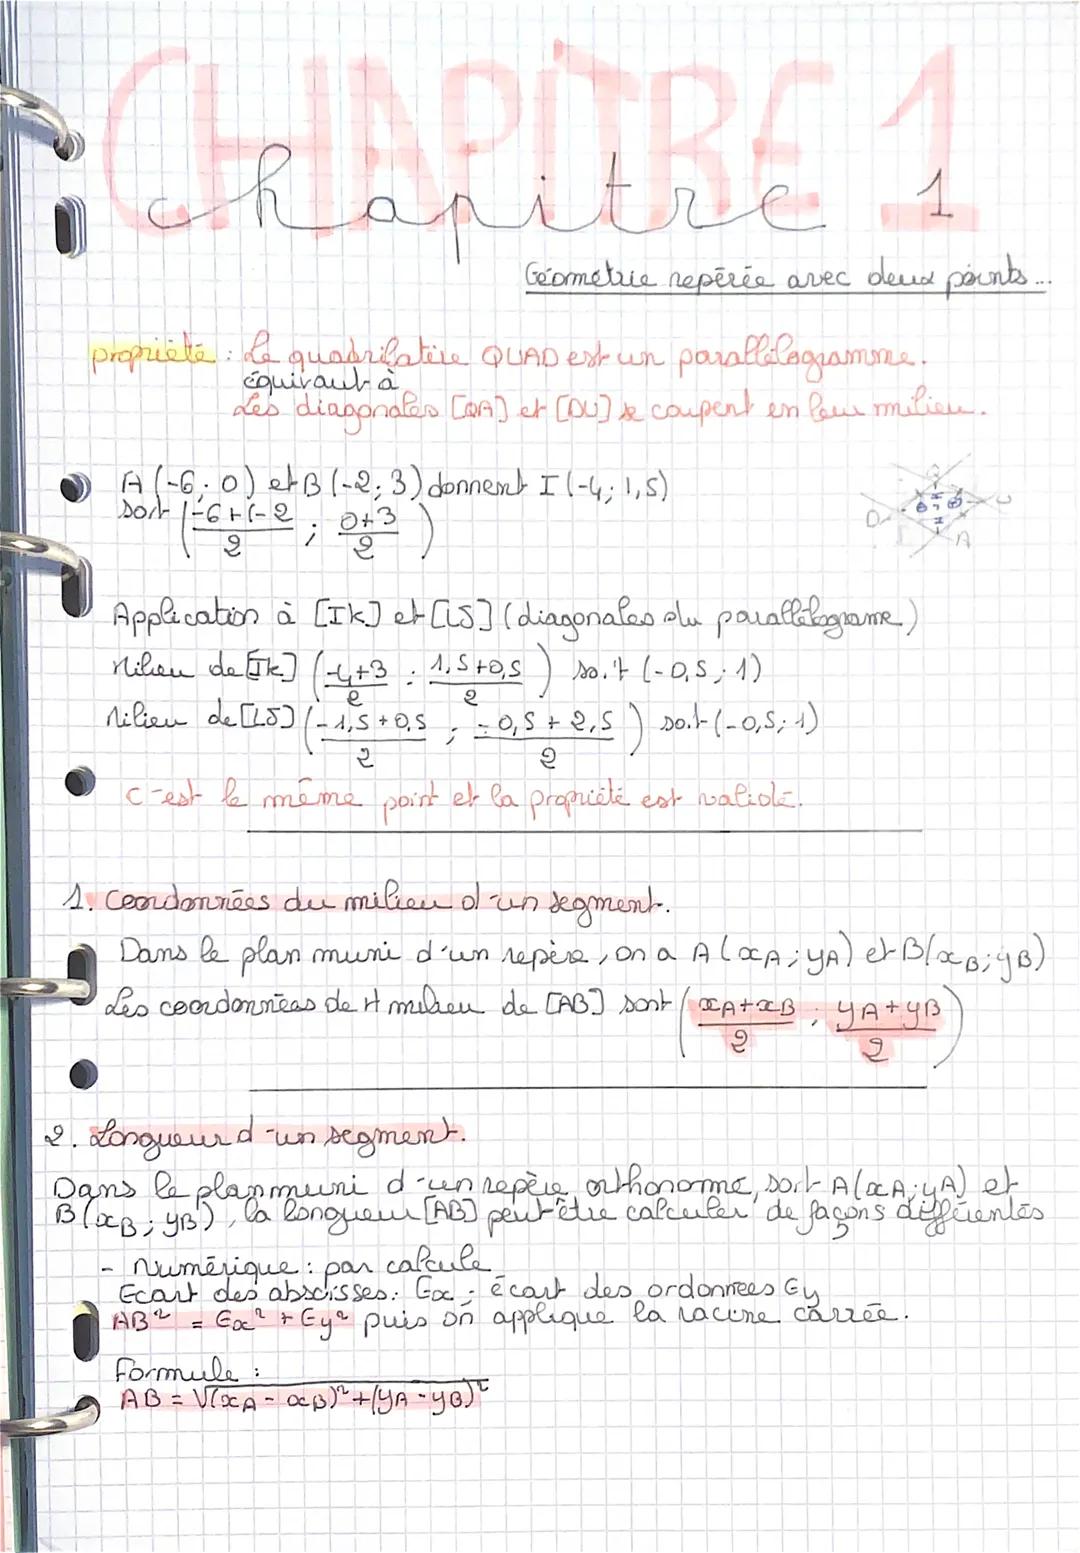 CHAPITRE 1
chapitre 1
Géométrie repérée avec deux points...
propriété : Le quadrilatère QUAD est un parallélogramme.
équivaut à
Les diagonales [QA] et [DU] se coupent en leur milieu.
A (-6; 0) et B (-2; 3) donnent I (-4; 1,5)
soit ( -6+(-2 / 2 ; 0+3 / 2 )
Q
D U
A
Application à [IK] et [LJ] (diagonales du parallélograme)
Milieu de [IK] ( -4+3 / 2 ; 1,5+0,5 / 2 ) soit (-0,5; 1)
Milieu de [LJ] ( -1,5+0,5 / 2 ; -0,5+2,5 / 2 ) soit (-0,5; 1)
c'est le même point et la propriété est validé.
1. Coordonnées du milieu d'un segment.
Dans le plan muni d'un repère, on a A (xA; yA) et B(xB; yB)
Les coordonnées de H milieu de [AB] sont ( xA+xB / 2 ; yA+yB / 2 )
2. Longueur d'un segment.
Dans le plan muni d'un repère orthonormé, soit A (xA; yA) et
B (xB; yB), la longueur [AB] peut être calculer de façons différentes
- Numérique : par calcule
Ecart des abscisses : Ex ; écart des ordonnees Ey
AB² = Ex² + Ey² puis on applique la racine carrée.
Formule :
AB = √(xA - xB)² + (yA - yB)²